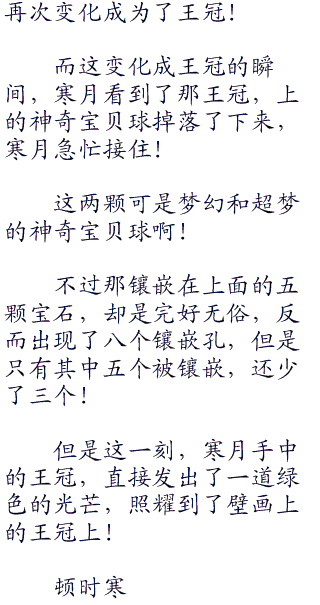 再次变化成为了王冠！
而这变化成王冠的瞬
间，寒月看到了那王冠，上
的神奇宝贝球掉落了下来，
寒月急忙接住！
这两颗可是梦幻和超梦
的神奇宝贝球啊！
不过那镶嵌在上面的五
颗宝石，却是完好无俗，反
而出现了八个镶嵌孔，但是
只有其中五个被镶嵌，还少
了三个！
但是这一刻，寒月手中
的王冠，直接发出了一道绿
色的光芒，照耀到了壁画上
的王冠上！
顿时寒